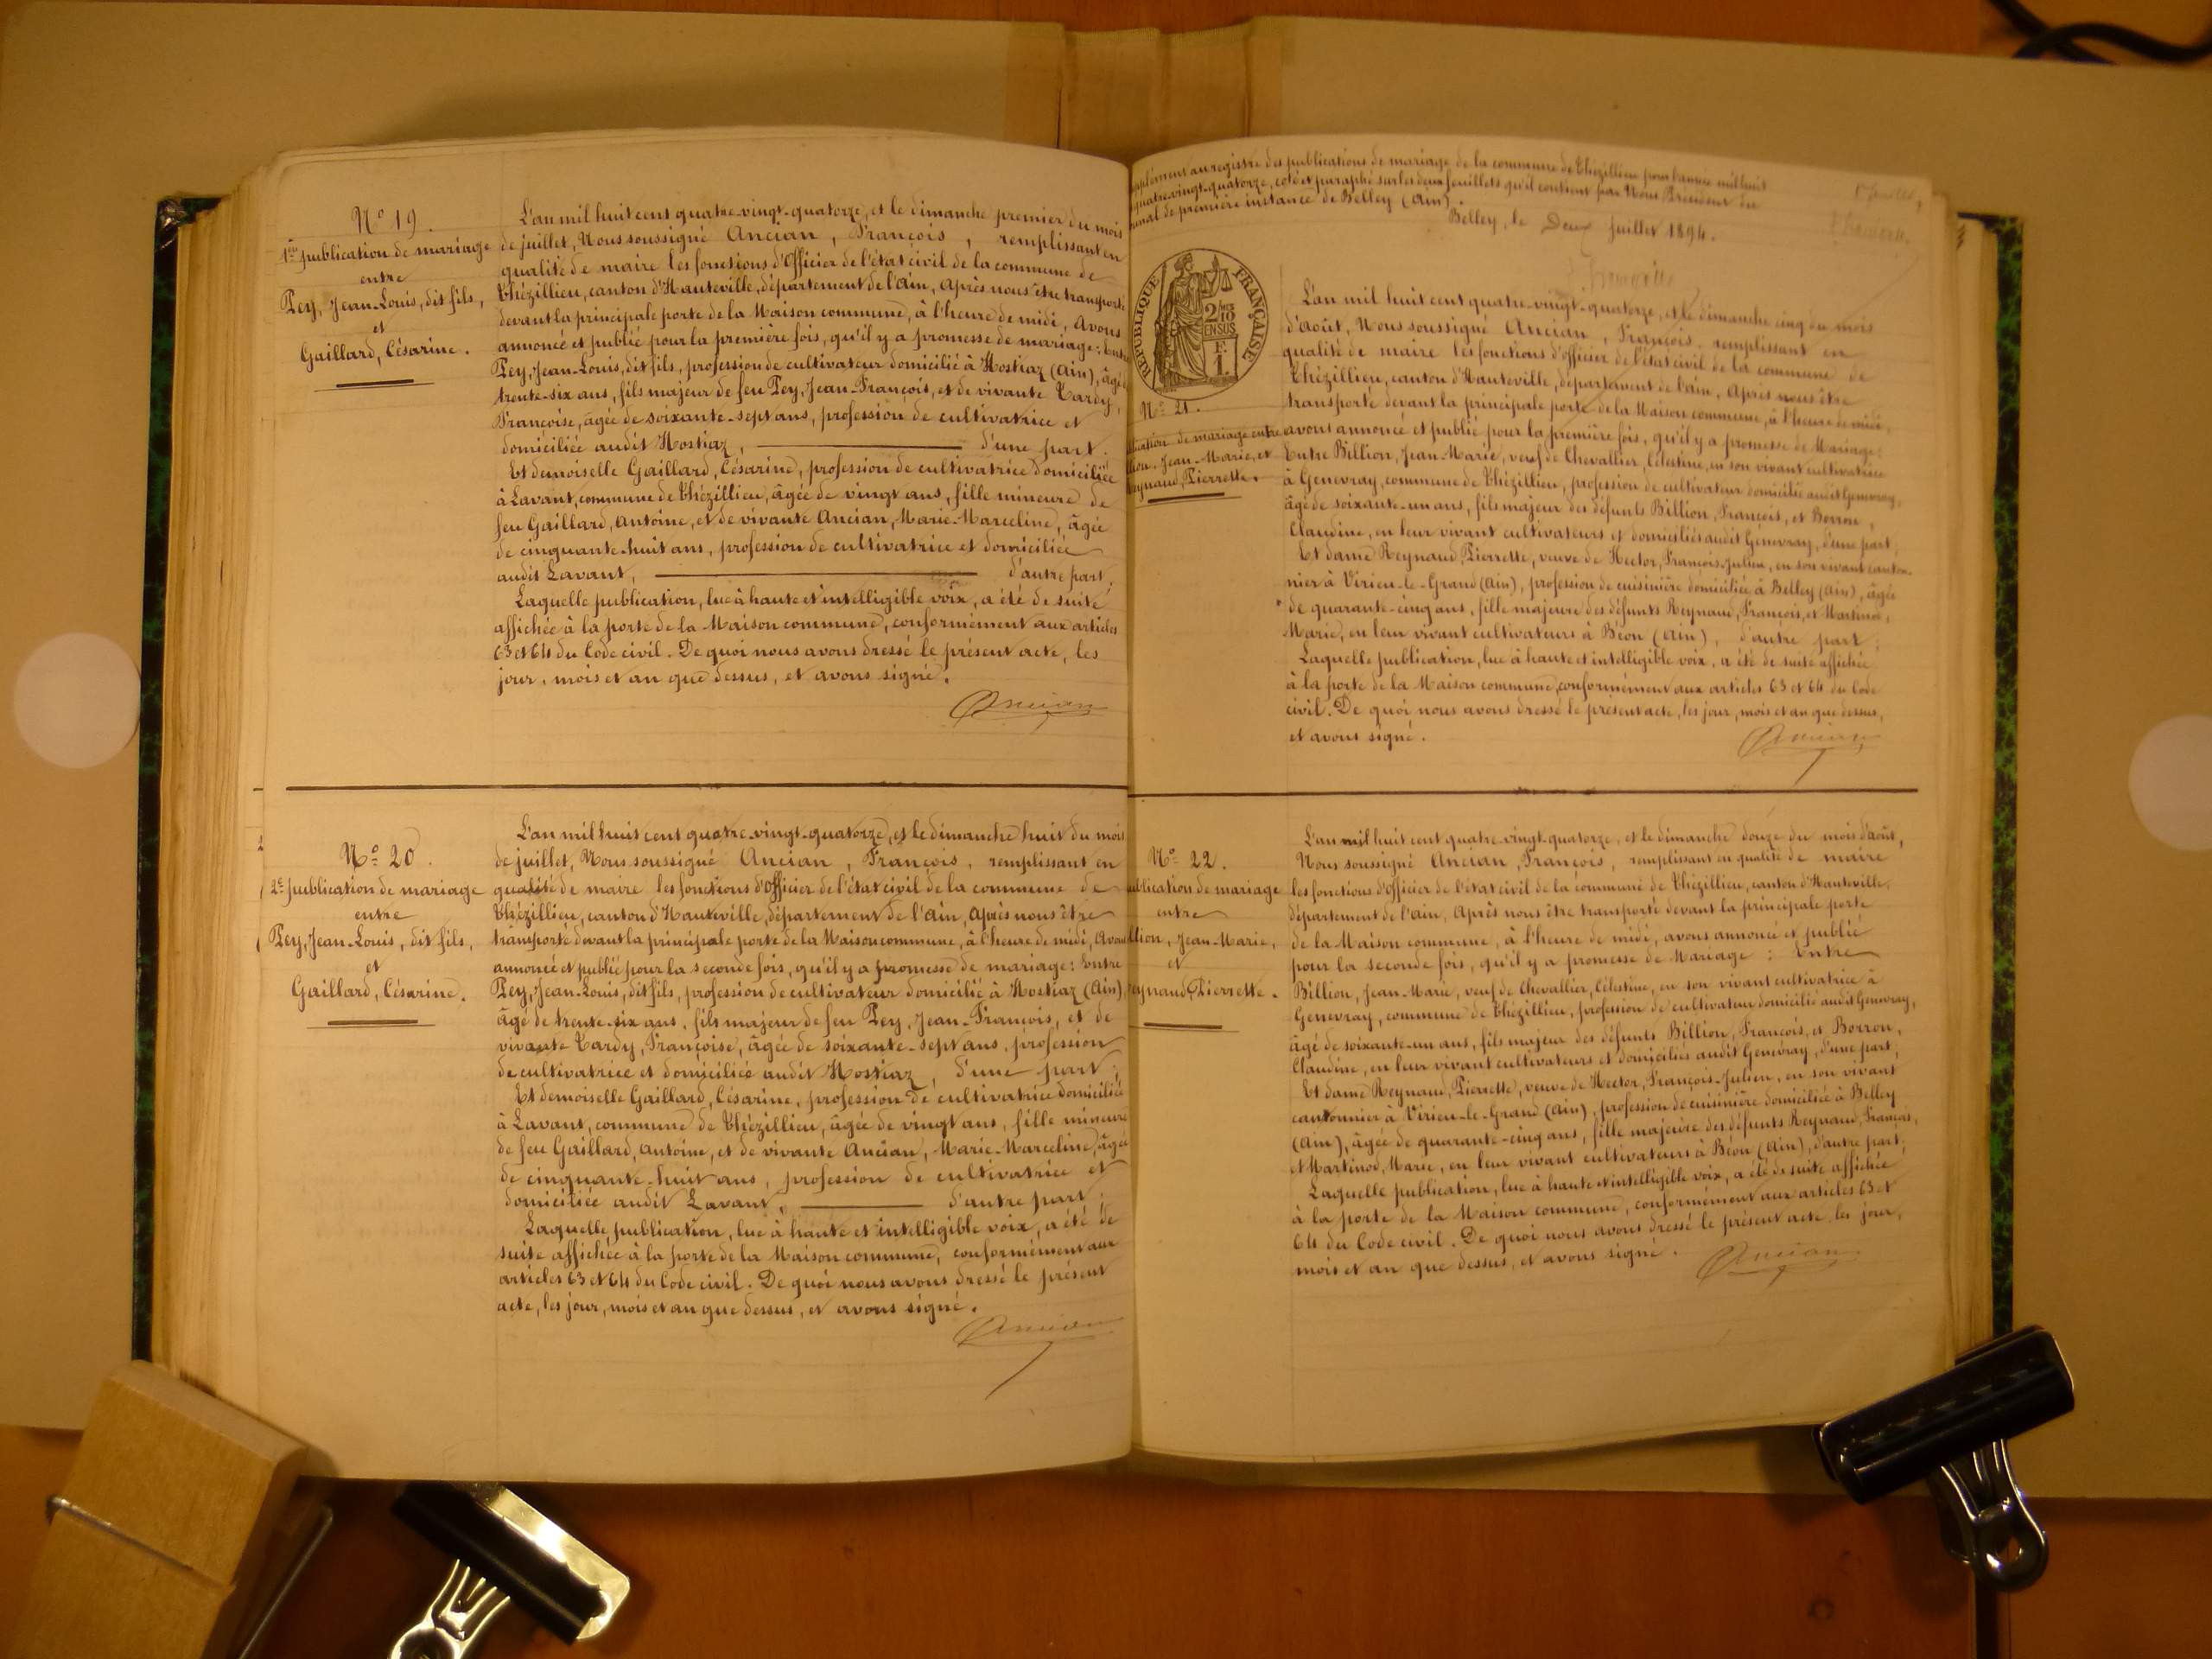 Nº 19.
1ère publication de mariage
entre
Pey, Jean-Louis, dit fils,
et
Gaillard, Césarine.
L'an mil huit cent quatre-vingt-quatorze, et le dimanche premier du mois
de juillet, Nous soussigné Ancian, François, remplissant en
qualité de maire les fonctions d'Officier de l'état civil de la commune de
Thézillieu, canton d'Hauteville, département de l'Ain, Après nous être transporté
devant la principale porte de la Maison commune, à l'heure de midi, Avons
annoncé et publié pour la première fois, qu'il y a promesse de mariage: Entre
Pey, Jean-Louis, dit fils, profession de cultivateur domicilié à Hostiaz (Ain), âgé
trente-six ans, fils majeur de feu Pey, Jean-François, et de vivante Tardy,
Françoise, âgée de soixante-sept ans, profession de cultivatrice et
domiciliée audit Hostiaz, d'une part.
Et demoiselle Gaillard, Césarine, profession de cultivatrice domiciliée
à Lavant, commune de Thézillieu, âgée de vingt ans, fille mineure de
feu Gaillard, Antoine, et de vivante Ancian, Marie-Marceline, âgée
de cinquante-huit ans, profession de cultivatrice et domiciliée
audit Lavant, d'autre part.
Laquelle publication, lue à haute et intelligible voix, a été de suite
affichée à la porte de la Maison commune, conformément aux articles
63 et 64 du Code civil. De quoi nous avons dressé le présent acte, les
jour, mois et an que dessus, et avons signé.
Ancian
Nº 20.
2e publication de mariage
entre
Pey, Jean-Louis, dit fils,
et
Gaillard, Césarine.
L'an mil huit cent quatre-vingt-quatorze, et le dimanche huit du mois
de juillet, Nous soussigné Ancian, François, remplissant en
qualité de maire les fonctions d'Officier de l'état civil de la commune de
Thézillieu, canton d'Hauteville, département de l'Ain, Après nous être
transporté devant la principale porte de la Maison commune, à l'heure de midi, Avons
annoncé et publié pour la seconde fois, qu'il y a promesse de mariage: Entre
Pey, Jean-Louis, dit fils, profession de cultivateur domicilié à Hostiaz (Ain),
âgé de trente-six ans, fils majeur de feu Pey, Jean-François, et de
vivante Tardy, Françoise, âgée de soixante-sept ans, profession
de cultivatrice et domiciliée audit Hostiaz, d'une part;
Et demoiselle Gaillard, Césarine, profession de cultivatrice domiciliée
à Lavant, commune de Thézillieu, âgée de vingt ans, fille mineure
de feu Gaillard, Antoine, et de vivante Ancian, Marie-Marceline, âgée
de cinquante-huit ans, profession de cultivatrice et
domiciliée audit Lavant, d'autre part;
Laquelle publication, lue à haute et intelligible voix, a été de
suite affichée à la porte de la Maison commune, conformément aux
articles 63 et 64 du Code civil. De quoi nous avons dressé le présent
acte, les jour, mois et an que dessus, et avons signé.
Ancian
pplément au registre des publications de mariage de la commune de Thézillieu pour l'année mil huit
quatre-vingt-quatorze, coté et paraphé sur les deux feuillets qu'il contient par Nous Président du
unal de première instance de Belley (Ain).
Belley, le Deux juillet 1894.
1er feuillet
RÉPUBLIQUE FRANÇAISE
2/10
EN SUS
F.
1.
Nº 21.
lication de mariage entre
lion, Jean-Marie, et
eynaud, Pierrette.
L'an mil huit cent quatre-vingt-quatorze, et le dimanche cinq du mois
d'août, Nous soussigné Ancian, François, remplissant en
qualité de maire les fonctions d'officier de l'état civil de la commune de
Thézillieu, canton d'Hauteville, département de l'Ain, Après nous être
transporté devant la principale porte de la Maison commune, à l'heure de midi,
avons annoncé et publié pour la première fois, qu'il y a promesse de Mariage:
Entre Billion, Jean-Marie, veuf de Chevallier, Célestine, en son vivant cultivatrice
à Genevray, commune de Thézillieu, profession de cultivateur domicilié audit Genevray,
âgé de soixante-un ans, fils majeur des défunts Billion, François, et Borron,
Claudine, en leur vivant cultivateurs et domiciliés audit Genevray, d'une part;
Et dame Reynaud, Pierrette, veuve de Hector, François-Julien, en son vivant canton-
nier à Virieu-le-Grand (Ain), profession de cuisinière domiciliée à Belley (Ain), âgée
de quarante-cinq ans, fille majeure des défunts Reynaud, François, et Martinod,
Marie, en leur vivant cultivateurs à Béon (Ain), d'autre part;
Laquelle publication, lue à haute et intelligible voix, a été de suite affichée
à la porte de la Maison commune, conformément aux articles 63 et 64 du Code
civil. De quoi nous avons dressé le présent acte, les jour, mois et an que dessus,
et avons signé.
Ancian
Nº 22.
ublication de mariage
entre
llion, Jean-Marie,
et
eynaud, Pierrette.
L'an mil huit cent quatre-vingt-quatorze, et le dimanche douze du mois d'août,
Nous soussigné Ancian, François, remplissant en qualité de maire
les fonctions d'officier de l'état civil de la commune de Thézillieu, canton d'Hauteville,
département de l'Ain, Après nous être transporté devant la principale porte
de la Maison commune, à l'heure de midi, avons annoncé et publié
pour la seconde fois, qu'il y a promesse de Mariage: Entre
Billion, Jean-Marie, veuf de Chevallier, Célestine, en son vivant cultivatrice à
Genevray, commune de Thézillieu, profession de cultivateur domicilié audit Genevray,
âgé de soixante-un ans, fils majeur des défunts Billion, François, et Borron,
Claudine, en leur vivant cultivateurs et domiciliés audit Genevray, d'une part;
Et dame Reynaud, Pierrette, veuve de Hector, François-Julien, en son vivant
cantonnier à Virieu-le-Grand (Ain), profession de cuisinière domiciliée à Belley
(Ain), âgée de quarante-cinq ans, fille majeure des défunts Reynaud, François,
et Martinod, Marie, en leur vivant cultivateurs à Béon (Ain), d'autre part;
Laquelle publication, lue à haute et intelligible voix, a été de suite affichée
à la porte de la Maison commune, conformément aux articles 63 et
64 du Code civil. De quoi nous avons dressé le présent acte, les jour,
mois et an que dessus, et avons signé.
Ancian